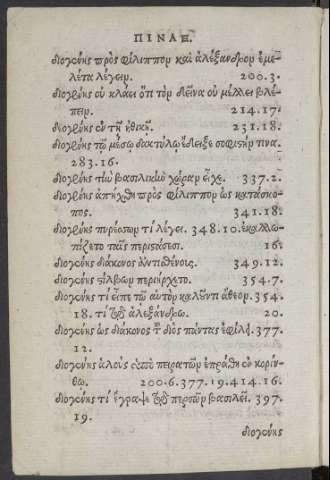 ΠΙΝΑΞ.
διογένης πρὸς φίλιππον καὶ ἀλέξανδρον ἐμε-
λέτα λέγειν. 200.3.
διογένης οὐ κλάει ὅτι τὸν δεῖνα οὐ μέλλει βλέ-
πειν. 214.17.
διογένης οὐ τῇ ἠθικῇ. 231.18.
διογένης τῷ μέσῳ δακτύλῳ ἔδειξε σοφιστήν τινα.
283.16.
διογένης τὴν βασιλικὴν χώραν εἶχε. 337.2.
διογένης ἀπήχθη πρὸς φίλιππον ὡς κατάσκο-
πος. 341.18.
διογένης πυρέσσων τί λέγει. 348.10. ἐκαλλω-
πίζετο ταῖς περιστάσεσι. 16.
διογένης διάκονος ἀντισθένους. 349.12.
διογένης στίλβων περιήρχετο. 354.7.
διογένης τί εἶπε τῷ αὐτὸν καλοῦντι ἄθεον. 354.
18. τί ἀλεξάνδρῳ. 20.
διογένης ὡς διάκονος τοῦ διὸς πάντας ἐφίλει. 377.
12.
διογένης ἁλοὺς ὑπὸ πειρατῶν ἐπράθη ἐν κορίν-
θῳ. 200.6.377.19.414.16.
διογένης τί ἔγραψε περσῶν βασιλεῖ. 397.
19.
διογένης